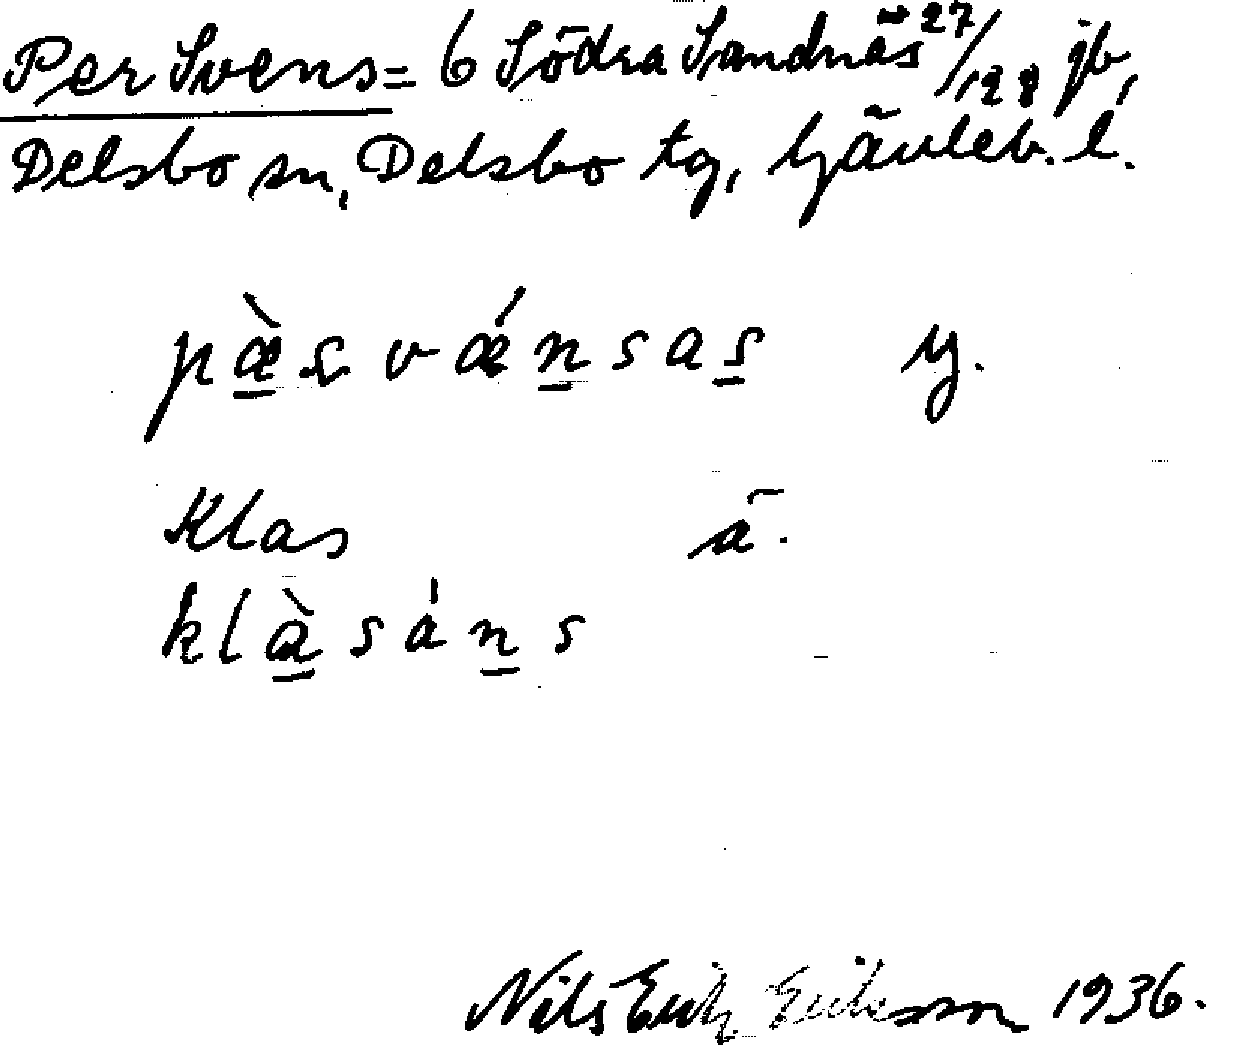 Per Svens= 6 Södra Sandnäs 27/128 jb,
Delsbo sn, Delsbo tg, Gävleb. l.
pæ̠̀s vǽn̠sas̠ y.
Klas ä.
klà̠sán̠s
Nils Erik Eriksson 1936.